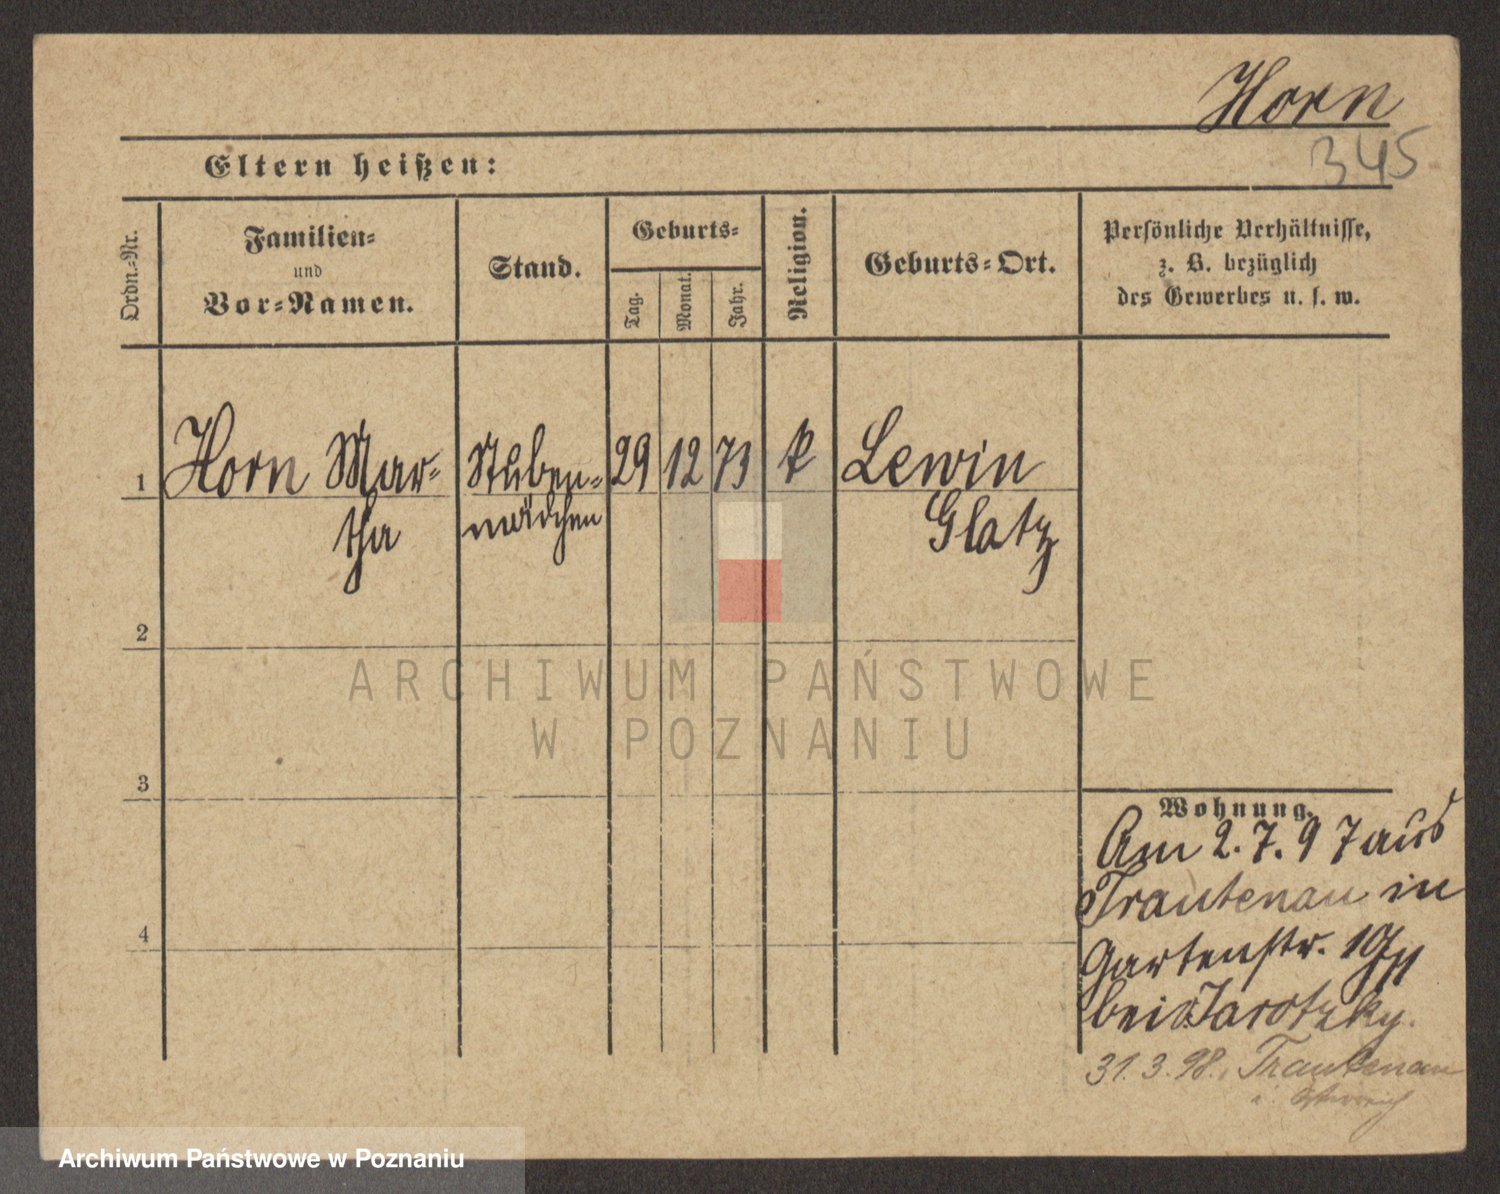 Horn
345
Eltern heißen:
Ordn.-Nr.
Familien-
und
Vor-Namen.
Stand.
Geburts-
Tag.
Monat.
Jahr.
Religion.
Geburts-Ort.
Persönliche Verhältnisse,
z. B. bezüglich
des Gewerbes u. s. w.
1 Horn Mar- Stuben- 29 12 73 k Lewin
tha mädchen Glatz
2
ARCHIWUM PAŃSTWOWE
W POZNANIU
3
4
Wohnung.
Am 2.7.97 aus
Trautenau in
Gartenstr. 19/II
bei Jarotzky.
31.3.98. Trautenau
i. Österreich
Archiwum Państwowe w Poznaniu